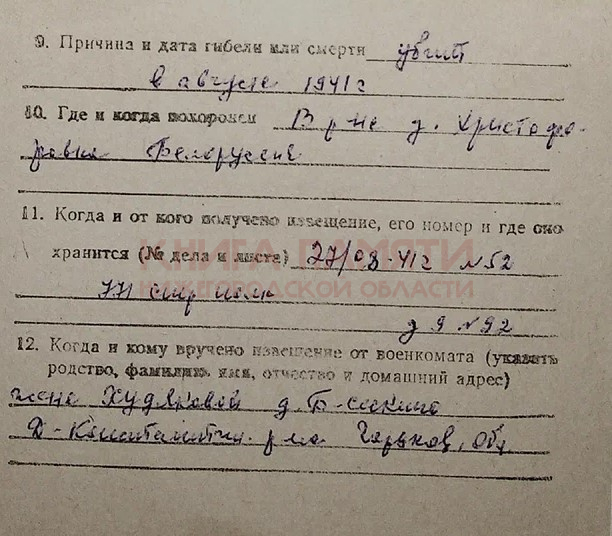 9. Причина и дата гибели или смерти убит
в августе 1941г
10. Где и когда похоронен В р-не д. Христофо-
ровка Белоруссия
11. Когда и от кого получено извещение, его номер и где оно
хранится (№ дела и листа) 27/08-41г №52
КНИГА ПАМЯТИ
НИЖЕГОРОДСКОЙ ОБЛАСТИ
771 стр полк
д 9 №92
12. Когда и кому вручено извещение от военкомата (указать
родство, фамилию, имя, отчество и домашний адрес)
жене Худяковой д.
Д-Константин. р-на Горьков, обл